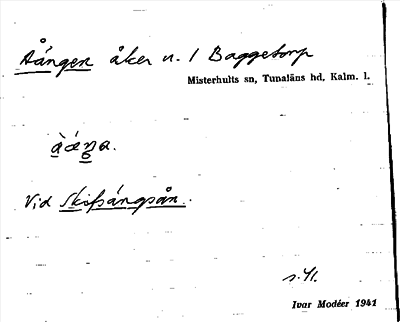 Aången åker n. 1 Baggetorp
Misterhults sn, Tunaläns hd, Kalm. l.
Vid Skifsångsån.
s. 41.
Ivar Modéer 1941